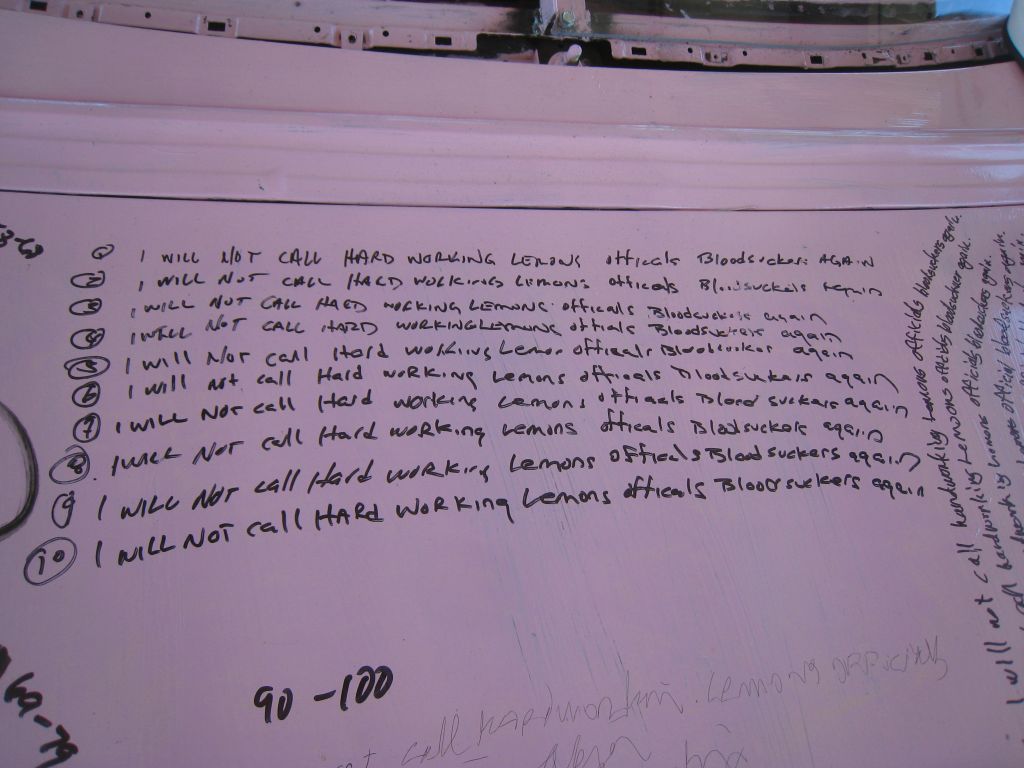 1 I WILL NOT CALL HARD WORKING LEMONS officals Bloodsuckers AGAIN
2 I WILL NOT CALL HARD WORKINGS LEMONS officals Bloodsuckers again
3 I WILL NOT CALL HARD WORKING LEMONS officals Bloodsuckers again
4 I WILL NOT CALL HARD WORKING LEMONS officals Bloodsuckers again
5 I will Not call Hard working Lemon officals Bloodsucker again
6 I will not call Hard WORKING Lemons officals Bloodsuckers again
7 I WILL NOT call Hard working Lemons officals Blood suckers again
8 I WILL NOT call Hard WORKING Lemons officals Bloodsuckers again
9 I WILL NOT call Hard WORKING Lemons officals Bloodsuckers again
10 I WILL NOT call HARD WORKING Lemons officals Bloodsuckers again
69-79
90-100
call HARDworking Lemons
I will not call hardworking Lemons officials bloodsuckers again.